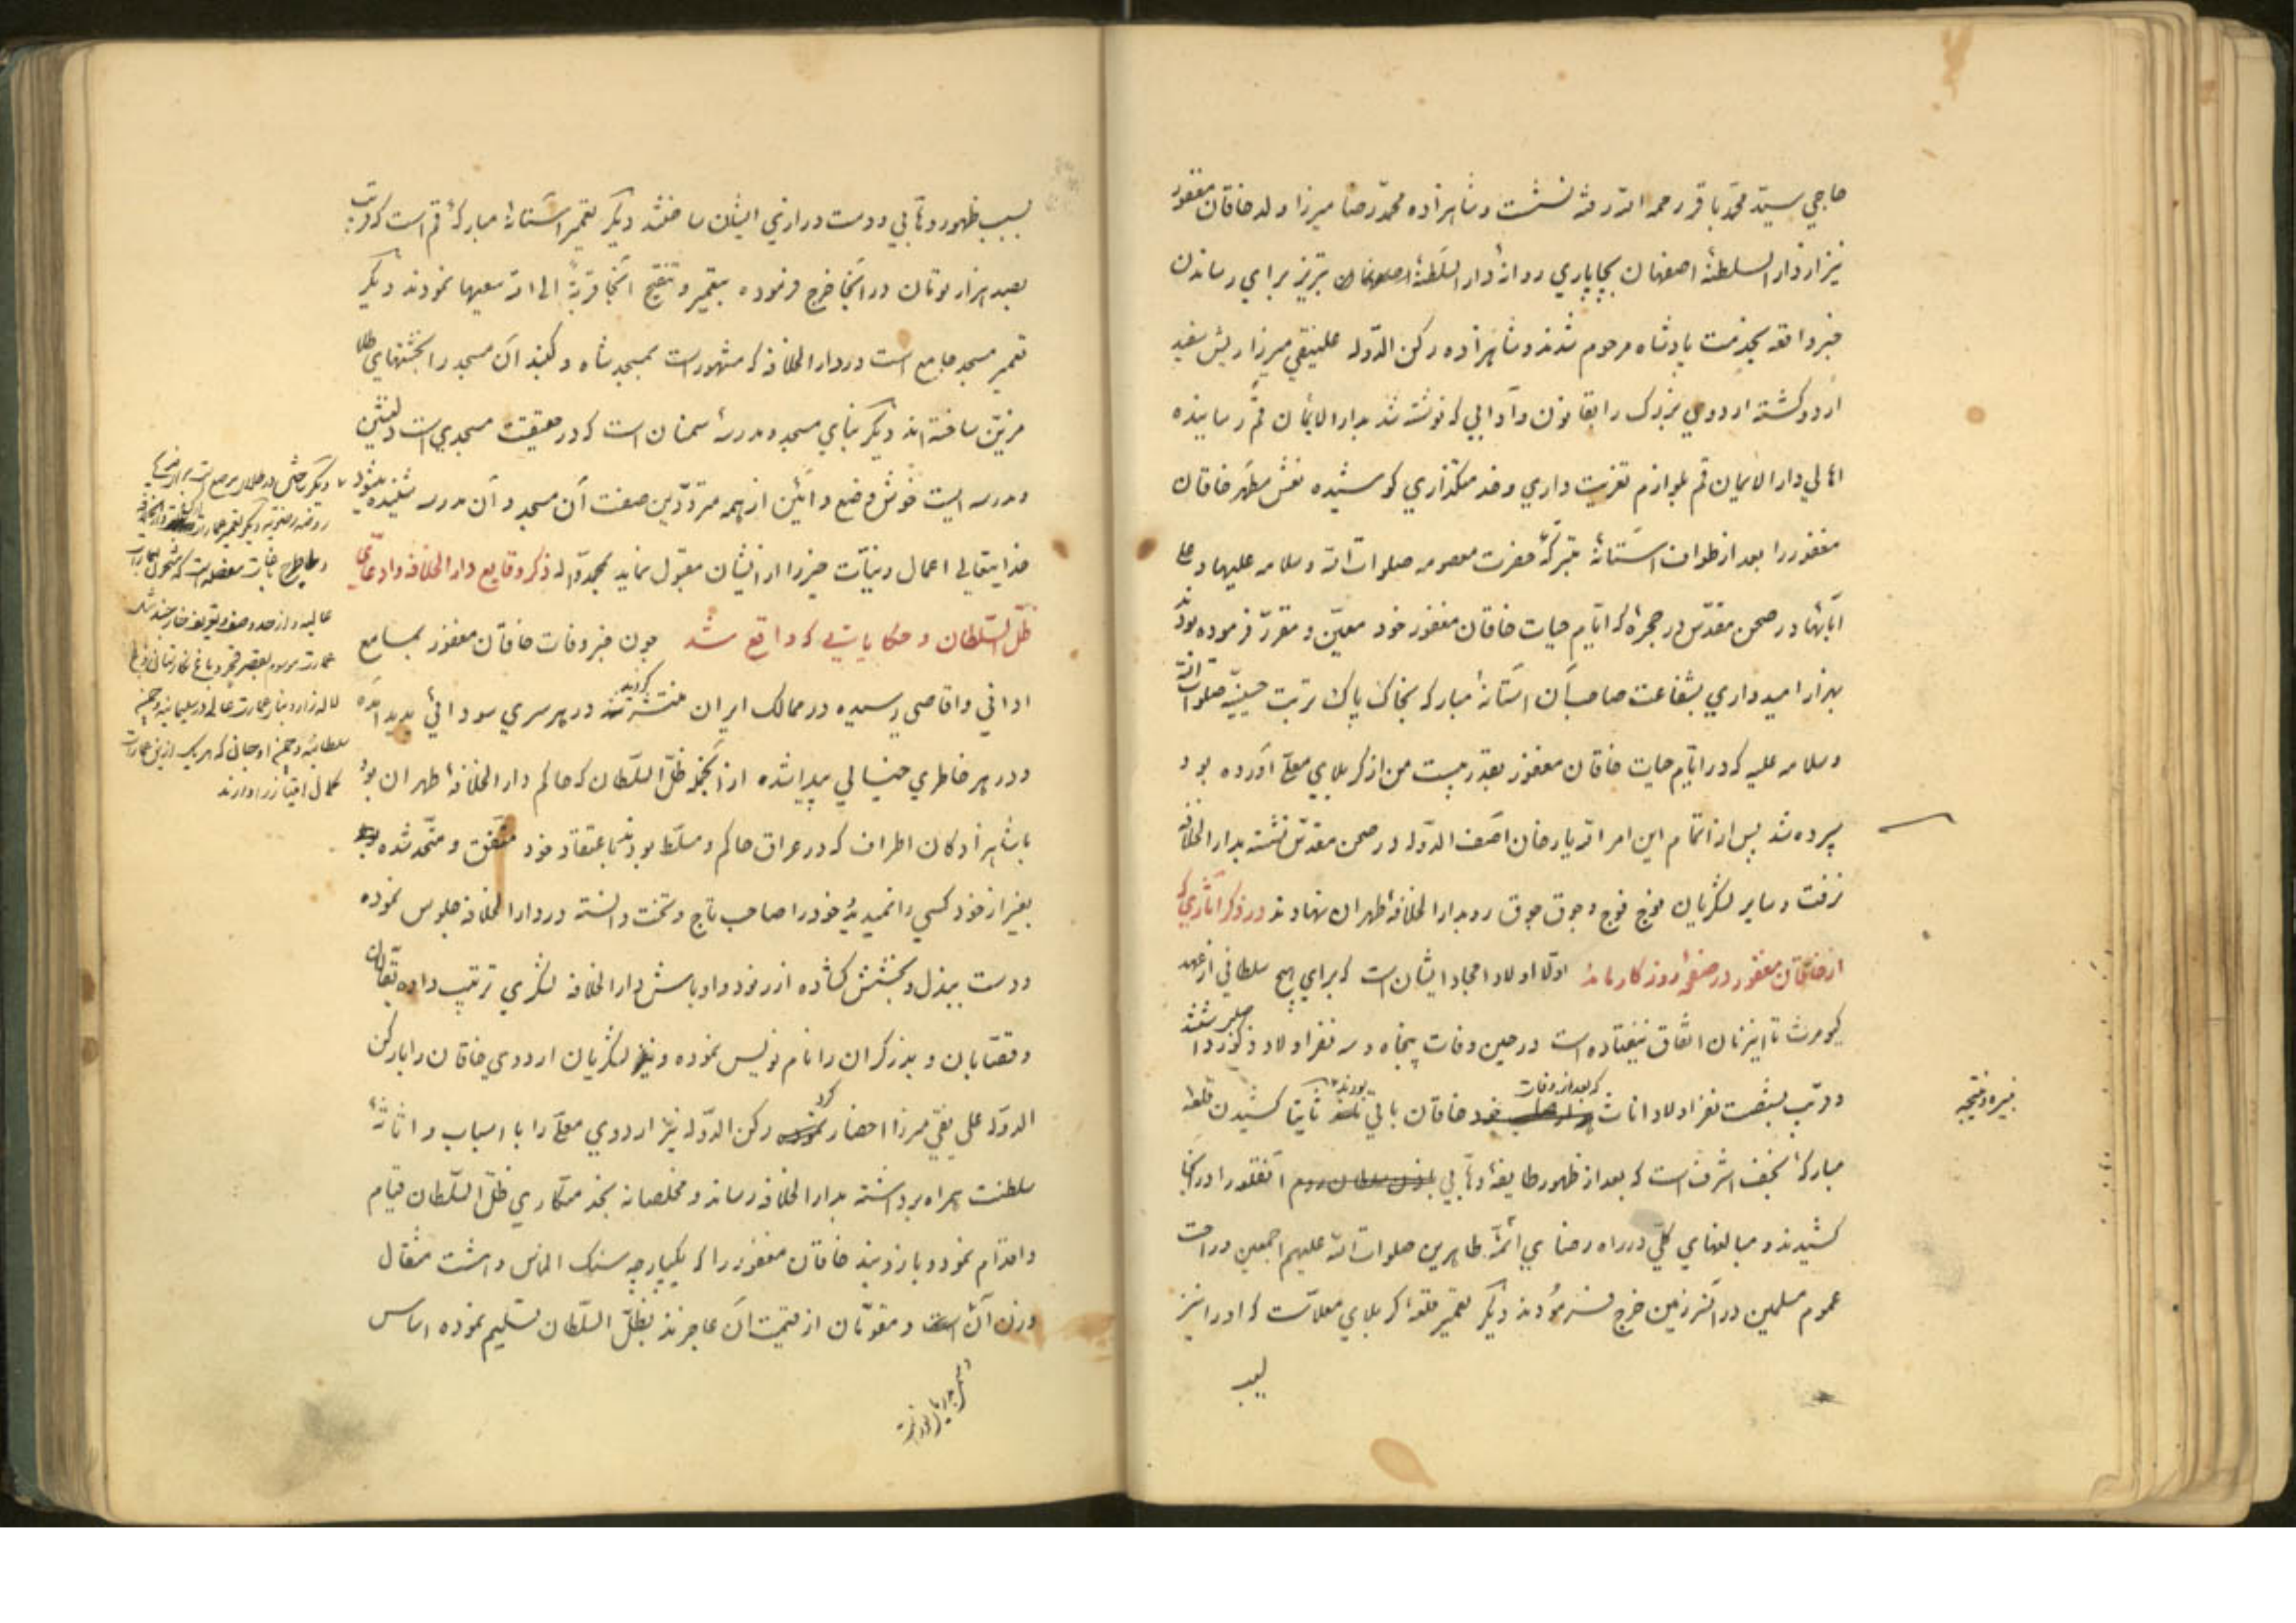 حاجي سيّد محمّد باقر رحمه الله رفته نشست و شاهزاده محمّد رضا ميرزا ولد خاقان مغفور
نيز از دار السلطنهٔ اصفهان بچاپاري روانهٔ دار السّلطنهٔ تبريز براي رساندن
خبر واقعه بخدمت پادشاه مرحوم شدند و شاهزاده ركن الدّوله علينقي ميرزا ريش سفيد
اردو كشته اردوي بزرك را بقانون و آدابي كه نوشته شد بدار الايمان قم رسانيده
اهالي دار الايمان قم بلوازم تعزيت داري و خدمتكذاري كوشيده نعش مطهّر خاقان
مغفور را بعد از طواف آستانهٔ متبركهٔ حضرت معصومه صلوات الله و سلامه عليها و علي
آبائها در صحن مقدّس در حجرهٔ كه ايّام حيات خاقان مغفور خود معيّن و مقرّر فرموده بودند
بهزار اميدواري بشفاعت صاحب آن آستانهٔ مباركه بخاك پاك تربت حسينيّه صلوات الله
و سلامه عليه كه در ايّام حيات خاقان مغفور بقدر بيست من از كربلاي معلّي آورده بود
سپرده شد پس از اتمام اين امر الله يار خان آصف الدّوله در صحن مقدّس نشسته بدار الخلافه
نرفت و ساير لشكريان فوج فوج و جوق جوق رو بدار الخلافهٔ طهران نهادند در ذكر آثاري كه
از خاقان مغفور در صفحهٔ روزكار مانده اوّلا اولاد امجاد ايشان است كه براي هيچ سلطاني از عهد
كيومرث تا اينزمان اتّفاق نيفتاده است در حين وفات پنجاه و سه نفر اولاد ذكور داشتند
و قريب بشصت نفر اولاد اناث كه بعد از وفات خاقان باقي بودند ثانيا كشيدن قلعهٔ
نبيره و نتيجه
مباركهٔ نجف اشرف است كه بعد از ظهور طايفهٔ وهّابي آنقلعه را در آنجا
كشيدند و مبالغهاي كلّي در راه رضاي ائمّهٔ طاهرين صلوات الله عليهم اجمعين و راحت
عموم مسلمين در آنسرزمين خرج فرمودند ديكر تعمير قلعهٔ كربلاي معلّاست كه او را نيز
بسبب
بسبب ظهور وهّابي و دست درازي ايشان ساختند ديكر تعمير آستانهٔ مباركهٔ قم است كه قريب
بصد هزار تومان در آنجا خرج فرموده بتعمير و تنقيح آنجا قربةً الي الله سعيها نمودند ديكر
تعمير مسجد جامع است در دار الخلافه كه مشهور است بمسجد شاه و كنبد آن مسجد را بخشتهاي طلا
مزيّن ساخته اند ديكر بناي مسجد و مدرسهٔ سمنان است كه در حقيقت مسجدي است دلنشين
و مدرسه ايست خوش وضع و آئين از همه متردّدين صفت آن مسجد و آن مدرسه شنيده ميشود
خدايتعالي اعمال و نيّات خير را از ايشان مقبول نمايد بمحمّد و آله ذكر وقايع دار الخلافه و ادّعاي
ظلّ السّلطان و حكاياتي كه واقع شد چون خبر وفات خاقان مغفور بمسامع
اداني و اقاصي رسيده در ممالك ايران منتشر كرديد در هر سري سودائي پديد آمده
و در هر خاطري خيالي پيدا شده از آنجمله ظلّ السّلطان كه حاكم دار الخلافهٔ طهران بود
با شاهزادكان اطراف كه در عراق حاكم و مسلّط بودند باعتقاد خود متّفق و متّحد شده
بغير از خود كسي را نميديد خود را صاحب تاج و تخت دانسته در دار الخلافه جلوس نموده
و دست ببذل و بخشش كشاده از رنود و اوباش دار الخلافه لشكري ترتيب داده بقّالان
و قصّابان و بزركران را نام نويس نموده و نيز لشكريان اردوي خاقان را با ركن
الدّوله علي نقي ميرزا احضار كرد ركن الدّوله نيز اردوي معلّي را با اسباب و اثاثهٔ
سلطنت همراه برداشته بدار الخلافه رساند و مخلصانه بخدمتكاري ظلّ السّلطان قيام
و اقدام نمود و بازوبند خاقان مغفور را كه يكپارچه سنك الماس و هشت مثقال
وزن آن است و مقوّمان از قيمت آن عاجزند بظلّ السّلطان تسليم نموده اساس
روضه رضويّه ديكر تعمير عمارت
عاليه
عمارت موسوم بقصر قجر و باغ نكارستان و باغ
لاله زار و بناي عمارت عالي در سليمانيه و چمن
سلطانيّه و چمن اوجان كه هر يك از اين عمارات
كمال امتياز را دارند